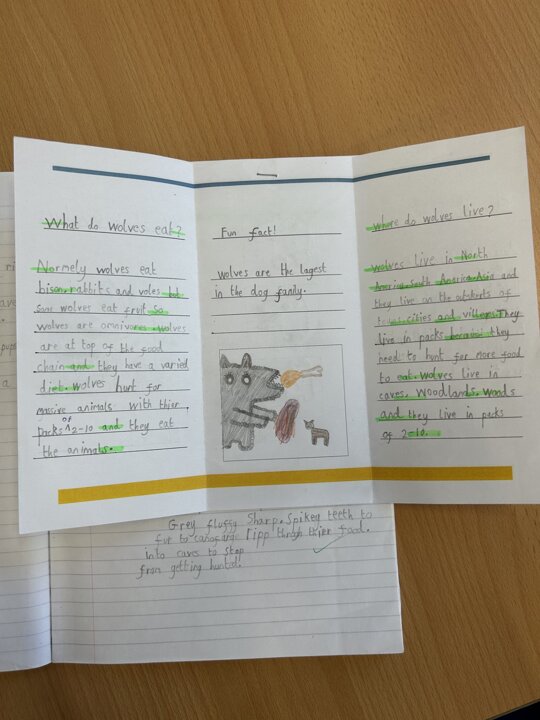 What do wolves eat?
Normely wolves eat
bison, rabbits and voles but
some wolves eat fruit so
wolves are omnivores. wolves
are at top of the food
chain and they have a varied
diet. wolves hunt for
massive animals with thier
packs of 2-10 and they eat
the animals.
Fun fact!
wolves are the lagest
in the dog family.
where do wolves live?
wolves live in North
America, South America, Asia and
they live on the outskirts of
cities and villeges. They
live in packs because they
need to hunt for more food
to eat. Wolves live in
caves, woodlands, woods
and they live in packs
of 2-10.
Grey fluffy Sharp. Spikey teeth to
fur to ripp through thier food.
into caves to stop
from getting hunted.